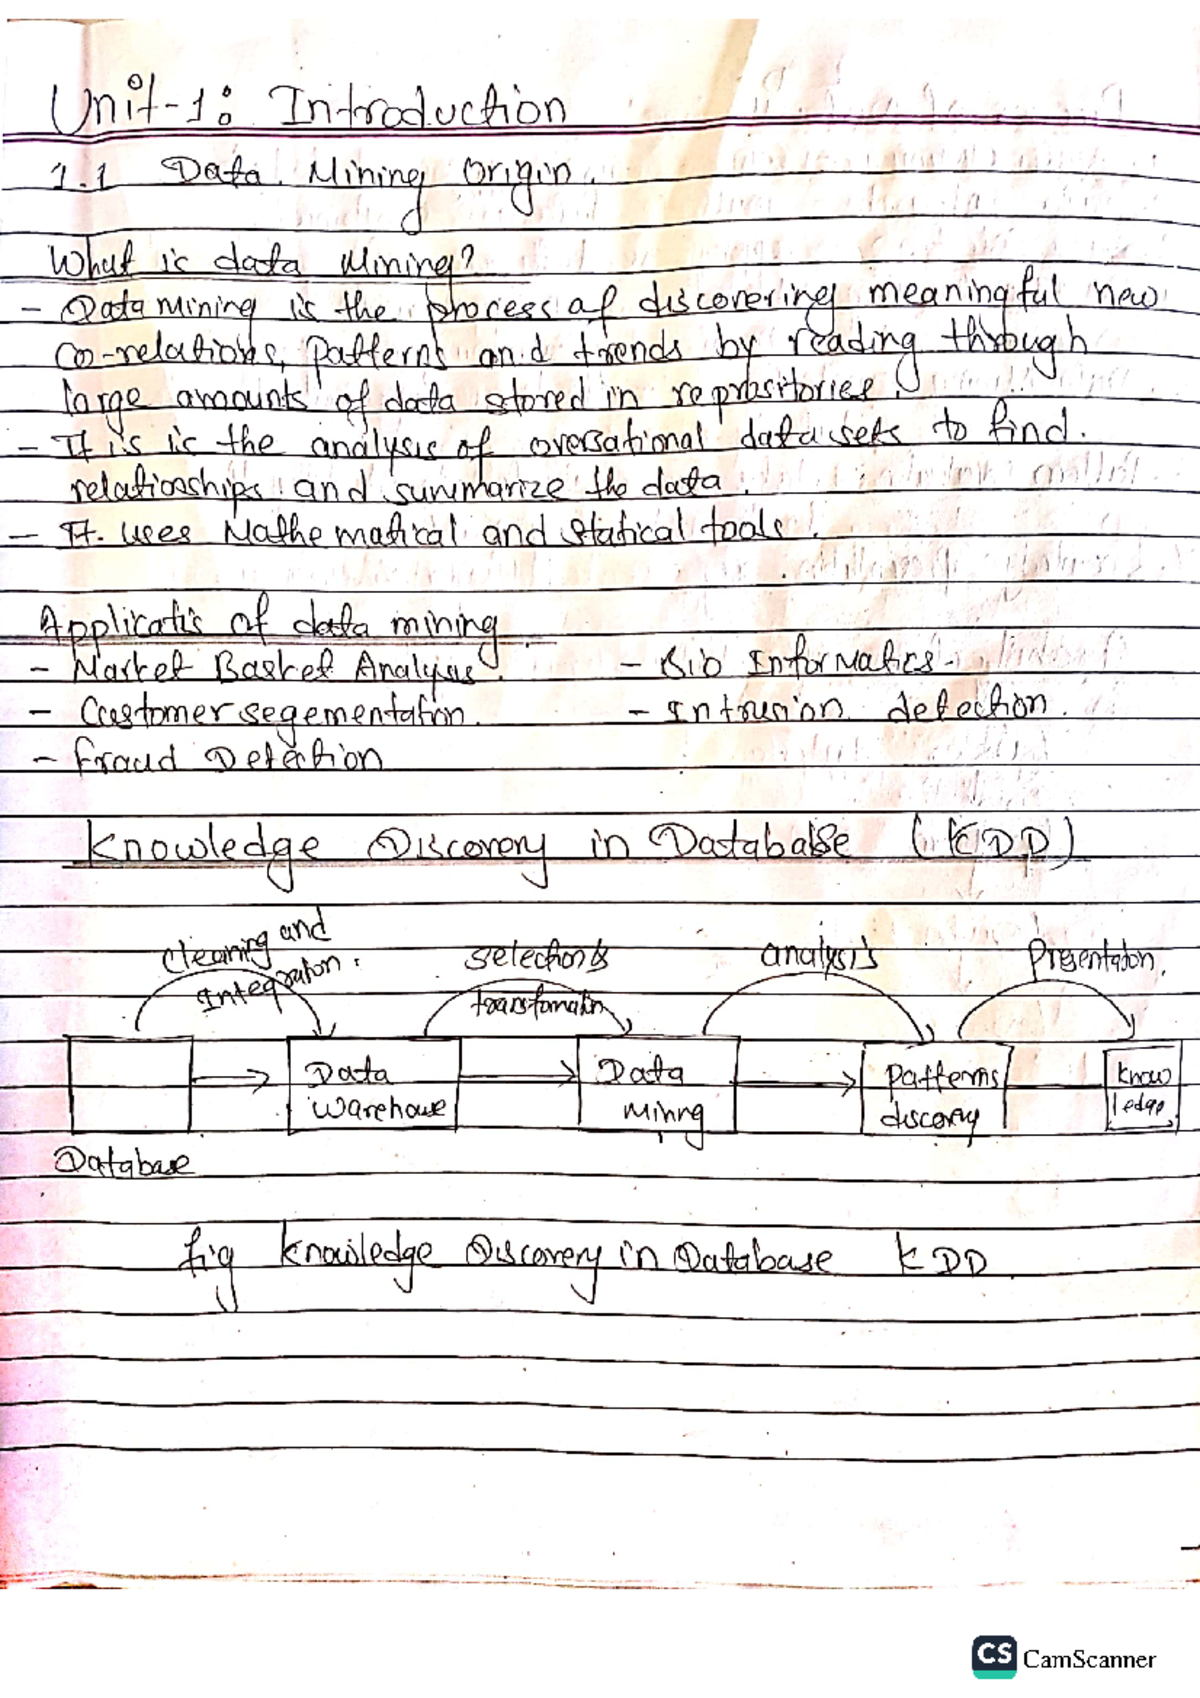 Unit-1: Introduction
1.1 Data Mining Origin.
What is data Mining?
- Data Mining is the process of discovering meaningful new
co-relations, patterns and trends by reading through
large amounts of data stored in reprositories.
- It is is the analysis of oversational data sets to find.
relationships and summarize the data.
- It uses Mathematical and Statical tools.
Applicatis of data mining
- Market Basket Analysis. - Bio Informatics.
- Customer segementation. - Intrusion detection.
- Fraud Detection
Knowledge Discovery in Database (KDD)
Cleaning and Integration. selection & transformation analysis Presentation.
Data warehouse Data Mining Patterns discovery knowledge
Database
fig Knowledge Discovery in Database KDD
CS CamScanner